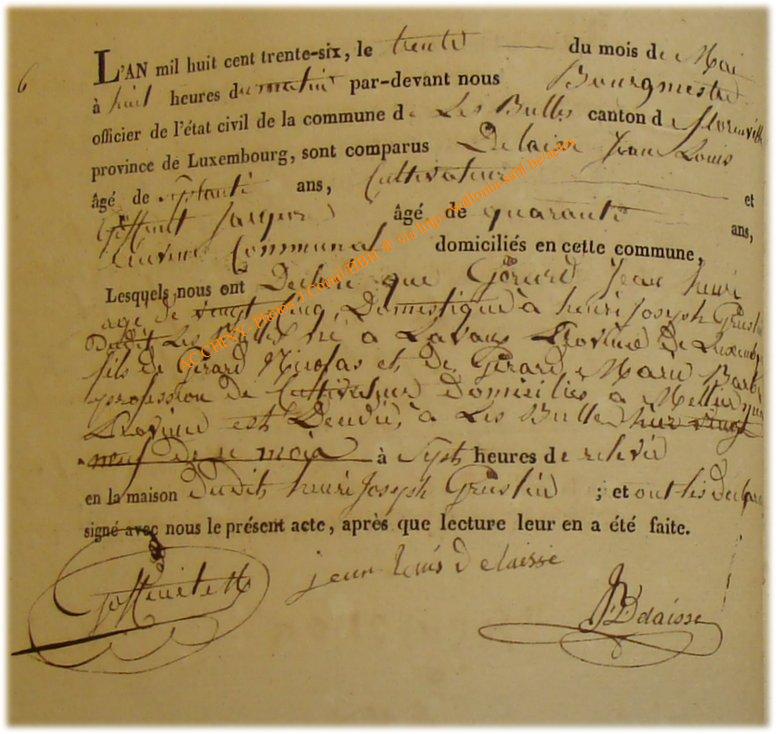 6
L'AN mil huit cent trente-six, le trente du mois de Mai
à huit heures du matin par-devant nous Bourgmestre
officier de l'état civil de la commune de Les Bulles canton de florenville
province de Luxembourg, sont comparus Delaisse Jean Louis
âgé de septante ans, Cultivateur et
Jacques âgé de quarante ans,
Communal domiciliés en cette commune,
Lesquels nous ont Declaré que Gérard Jean henri
agé de vingt cinq, Domestique à henri Joseph Grustin
Dudit Les Bulles né à Lavaux Province de Luxembg
fils de Gérard Nicolas et de Gérard Marie Barbe
profession de Cultivateur Domiciliés a Mellier
Province est Decedé, à Les Bulles hier vingt
neuf de ce mois à sept heures de relevée
en la maison dudit henri Joseph Grustin ; et ont les
signé avec nous le présent acte, après que lecture leur en a été faite.
jean louis Delaisse
Delaisse